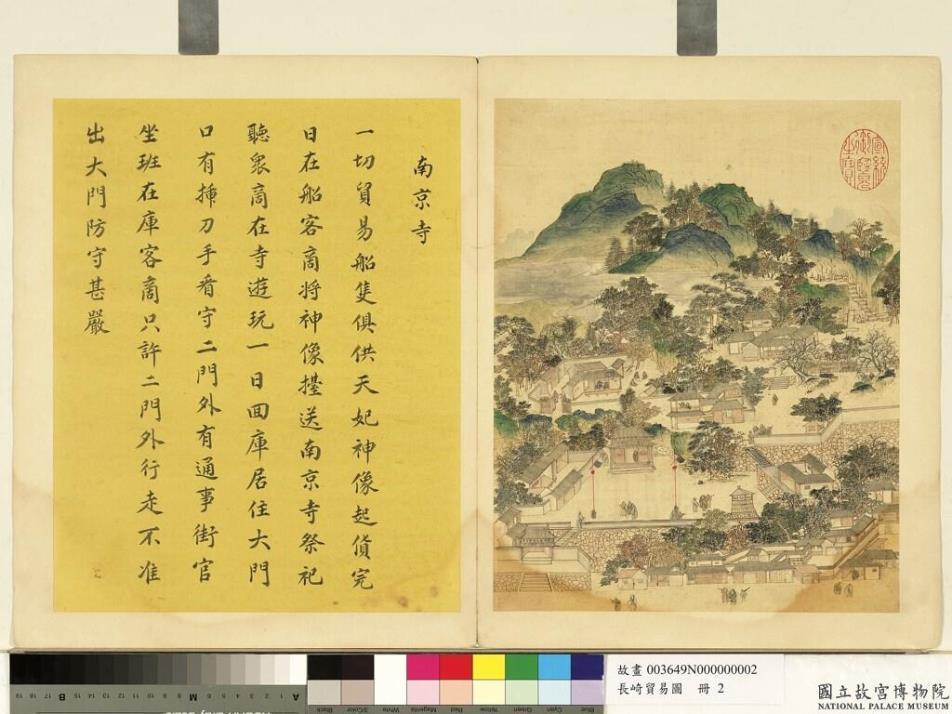 南京寺
一切貿易船隻俱供天妃神像起貨完
日在船客商将神像擡送南京寺祭祀
聽衆商在寺遊玩一日回庫居住大門
口有揷刀手看守二門外有通事街官
坐班在庫客商只許二門外行走不准
出大門防守甚嚴
故畫 003649N000000002
長崎貿易圖 冊 2
國立故宮博物院
NATIONAL PALACE MUSEUM